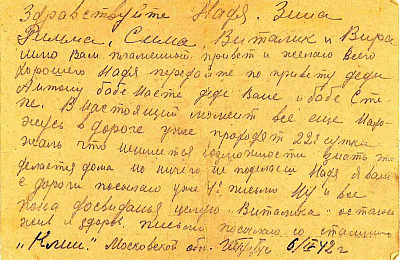 Здравствуйте Надя. Зина
Римма, Сима, Виталик и Вира
шлю Вам пламенный привет и желаю всего
хорошего Надя передайте по привету деди
Антону бабе Насте деде Ване и бабе Сте
пе. В настоящий момент все еще нахо
жусь в дороге уже проходят 22е сутки
жаль что неимется возможности знать что
делается дома но ничего не поделаеш Надя я вам
с дороги посылаю уже 4е письмо Ну и все
пока досвиданья целую "Виталика" остаюсь
жив и здоров. письмо посылаю со станции
"Клин." Московской обл. 6/III 42 г